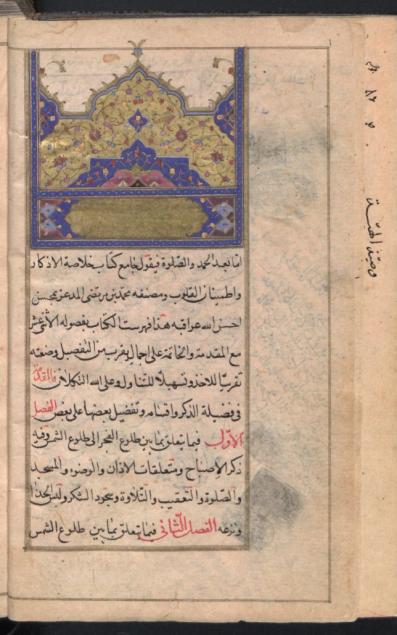 اما بعد الحمد والصلوة فيقول جامع كتاب خلاصة الاذكار
واطمينان القلوب ومصنفه محمد بن مرتضى المدعو بمحسن
احسن الله عواقبه هذا فهرست الكتاب بفصوله الاثنى عشر
مع المقدمة والخاتمة على اجمال يقرب من التفصيل وضعته
تقريبًا للاخذ وتسهيلًا للتناول وعلى الله التكلان المقدمة
فى فضيلة الذكر واقسامه وتفضيل بعضها على بعض الفصل
الاول فيما يتعلق بما بين طلوع الفجر الى طلوع الشمس وفيه
ذكر الاصباح ومتعلقات الاذان والوضوء والمسجد
والصلوة والتعقيب والتلاوة وسجود الشكر ولبس الحذاء
ونزعه الفصل الثانى فيما يتعلق بما بين طلوع الشمس